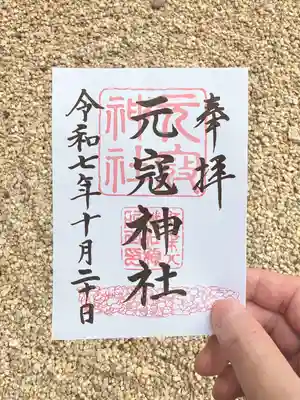 奉拝
元寇神社
令和七年十月二十日
元寇
神社